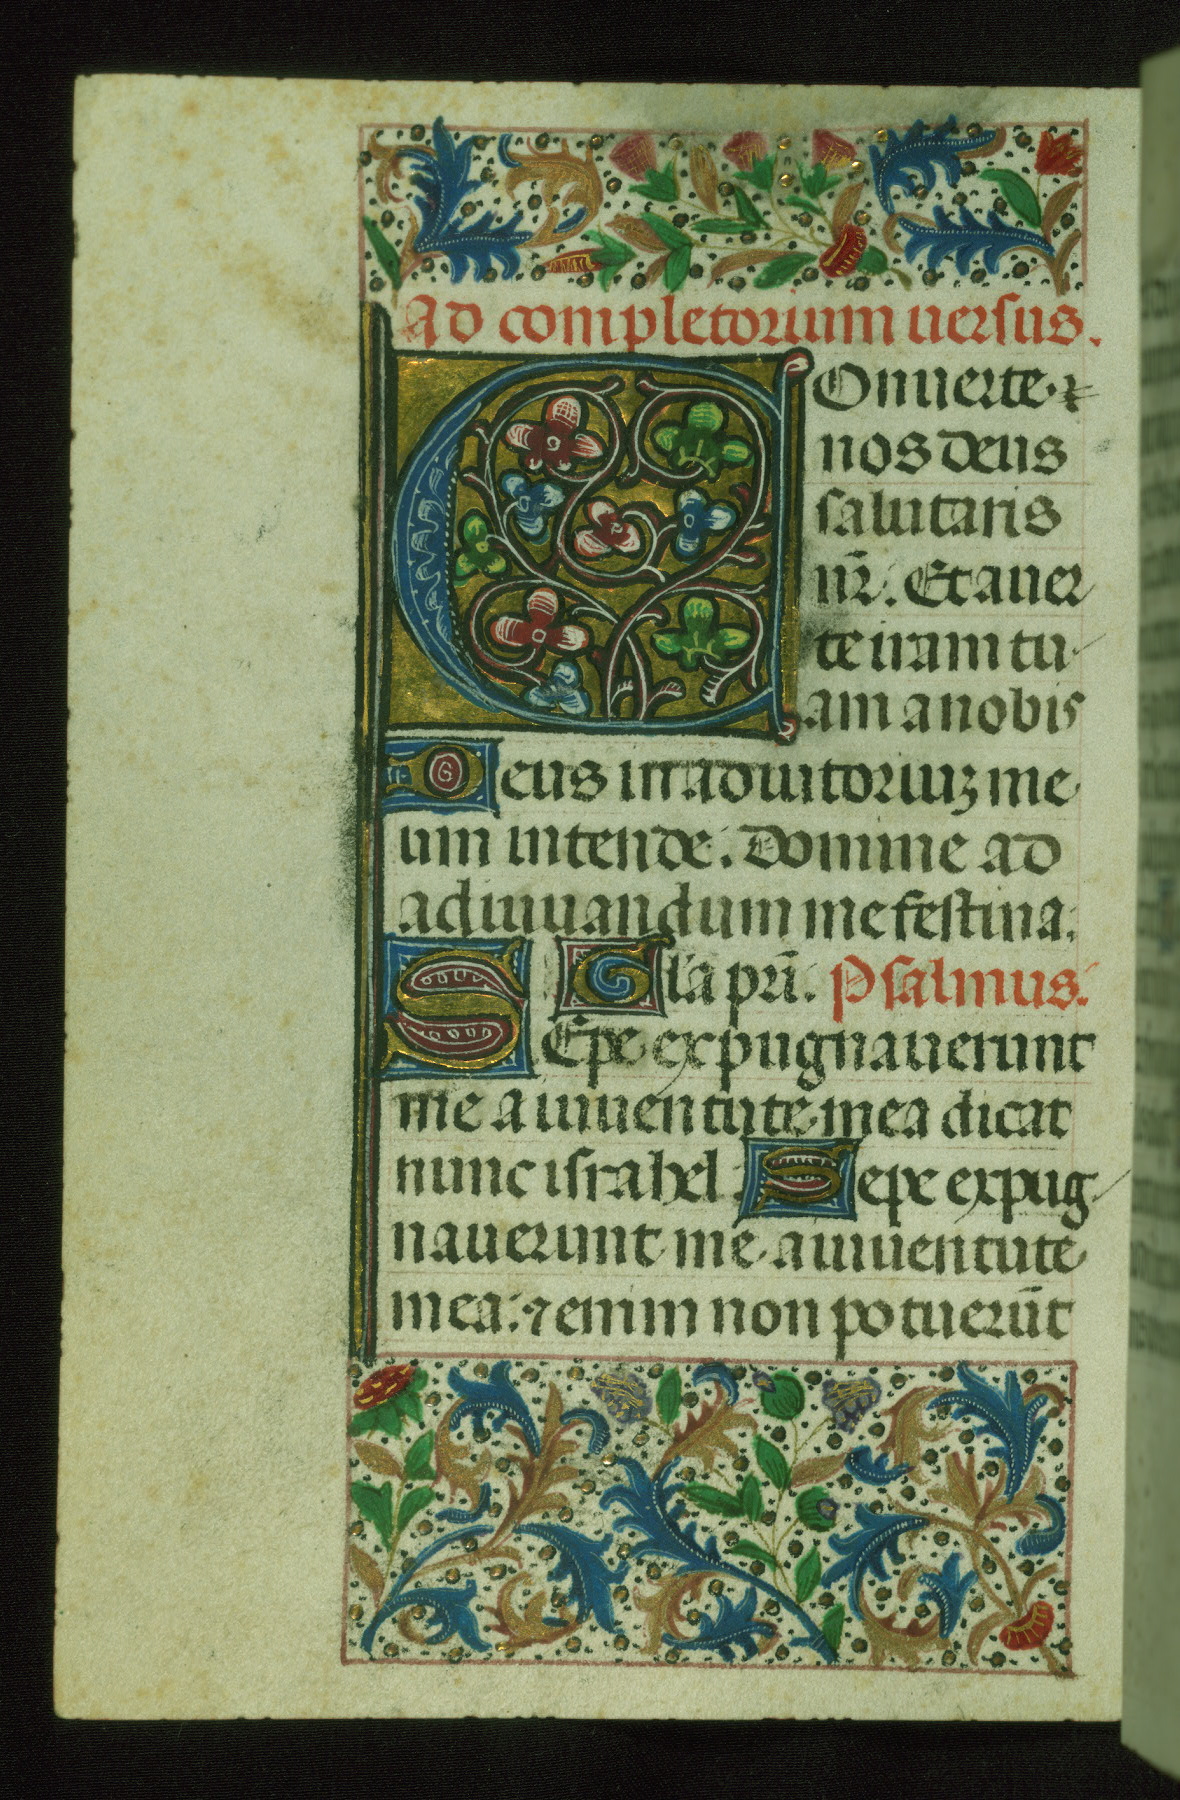 Ad completorium uersus.
COnuerte
nos deus
salutaris
nr̃. Et auer
te iram tu
am a nobis
Deus in adiutoriuꝫ me
um intende. Domine ad
adiuuandum me festina.
Gla pri̅. Psalmus.
SEpe expugnauerunt
me a iuuentute mea dicat
nunc israhel. Sepe expug
nauerunt me a iuuentute
mea. ⁊ enim non potuerūt